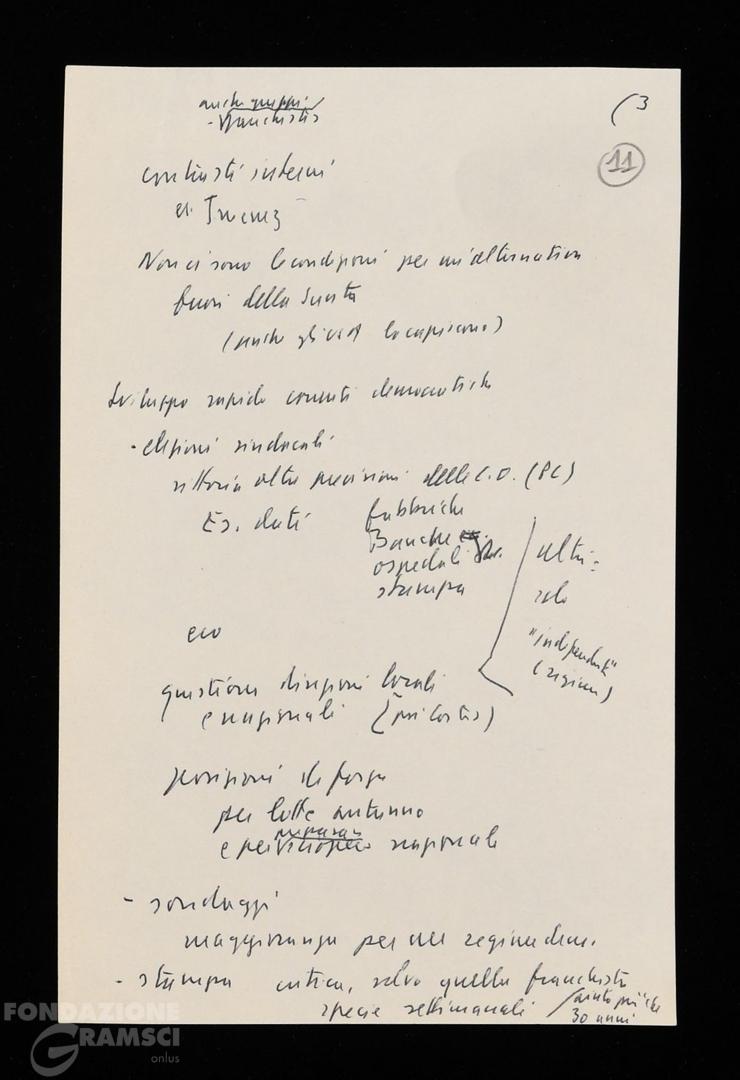 anche gruppi
- franchisti
(3
11
contrasti interni
es.
Non ci sono le condizioni per un'alternativa
fuori della Giunta
(anche gli USA lo capiscono)
Sviluppo rapido correnti democratiche
- elezioni sindacali
vittoria oltre previsioni delle C.O. (PC)
Es. dati
fabbriche
Banche
ospedali
stampa
altri:
solo
"indipendenti"
(regime)
ecc
questione direzioni locali
e nazionali (più costes)
posizioni di forza
per lotte autunno
e per sciopero nazionale
preparare
- sondaggi
maggioranza per un regime dem.
- stampa critica, salvo quella franchista
specie settimanali
30 anni
FONDAZIONE
GRAMSCI
onlus